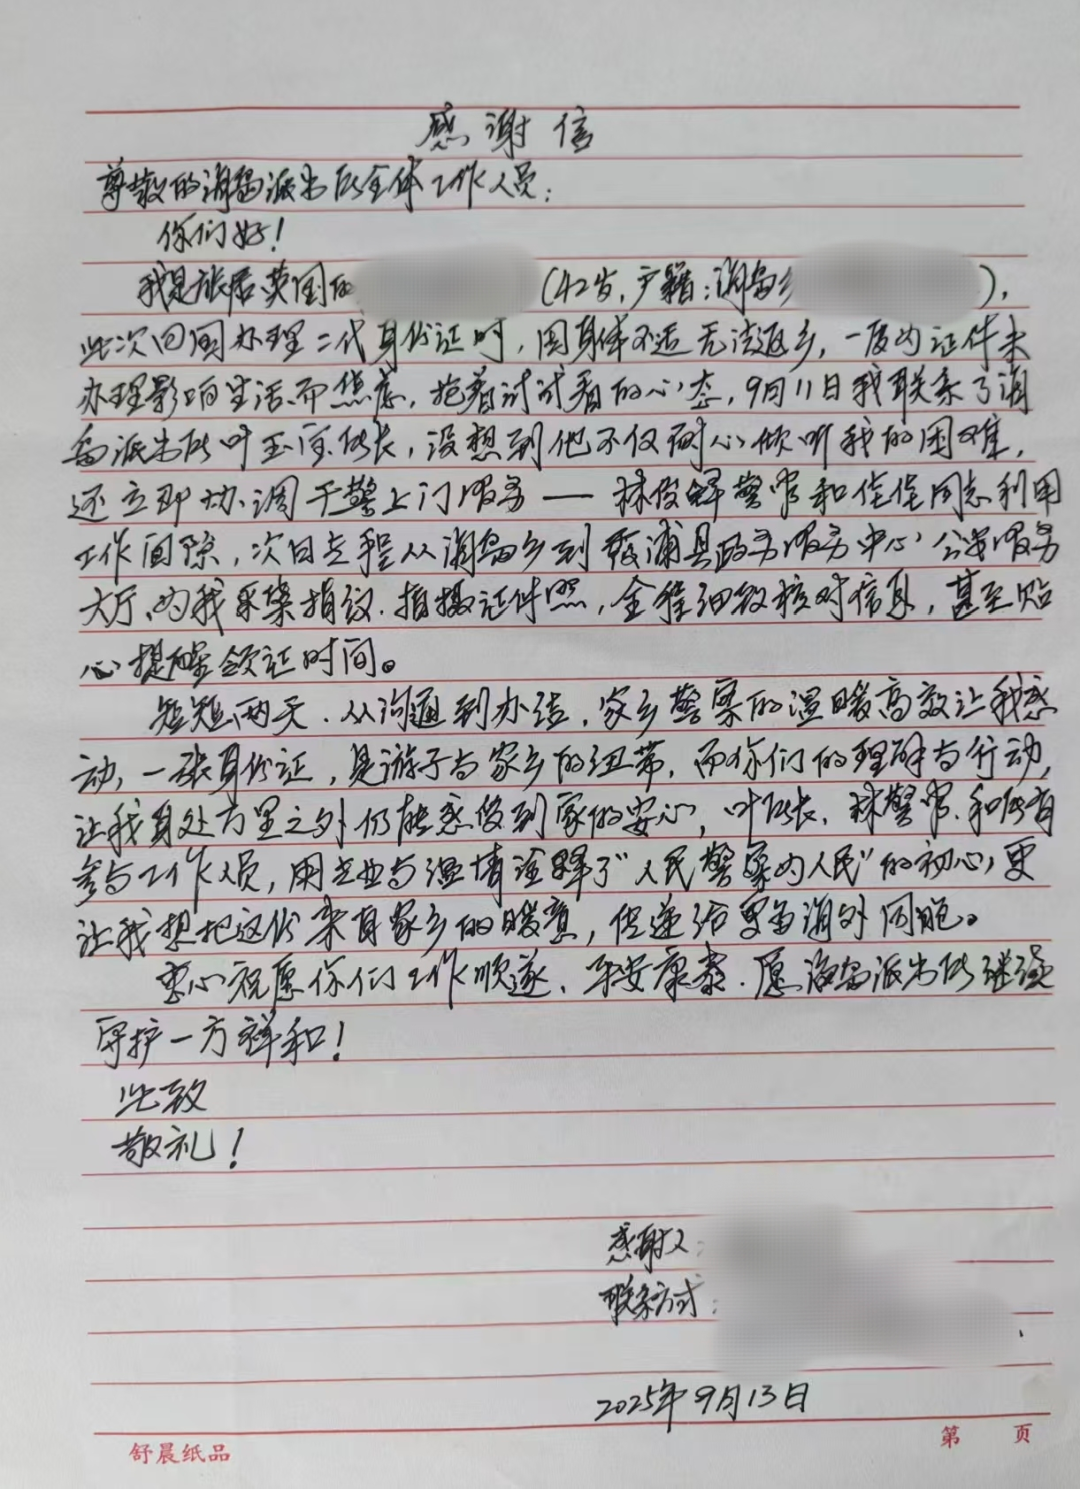 感谢信
尊敬的海岛派出所全体工作人员：
你们好！
我是旅居英国的（42岁，户籍：海岛乡），
此次回国办理二代身份证时，因身体不适无法返乡，一度为证件未
办理影响生活而焦虑，抱着试试看的心态，9月11日我联系了海
岛派出所叶玉宝所长，没想到他不仅耐心倾听我的困难，
还立即协调干警上门服务——林俊辉警官和佳佳同志利用
工作间隙，次日专程从海岛乡到霞浦县政务服务中心公安服务
大厅，为我采集指纹、拍摄证件照，全程细致核对信息，甚至贴
心提醒领证时间。
短短两天，从沟通到办结，家乡警察的温暖高效让我感
动，一张身份证，是游子与家乡的纽带，而你们的理解与行动，
让我身处万里之外仍能感受到家的安心，叶所长、林警官、和所有
参与工作人员，用专业与温情诠释了“人民警察为人民”的初心，更
让我想把这份来自家乡的暖意，传递给更多海外同胞。
衷心祝愿你们工作顺遂、平安康泰．愿海岛派出所继续
守护一方祥和！
此致
敬礼！
感谢人：
联系方式：
2025年9月13日
舒晨纸品 第 页